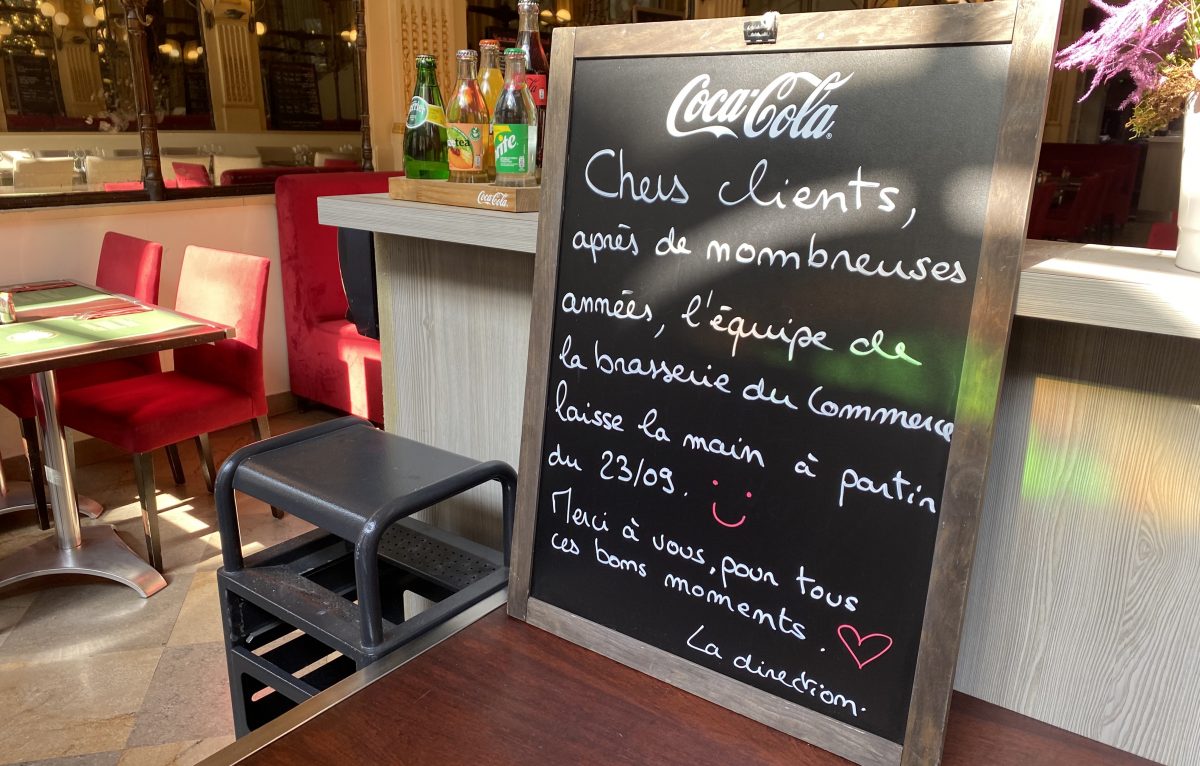 Coca-Cola
Chers clients,
après de nombreuses
années, l'équipe de
la brasserie du Commerce
laisse la main à partir
du 23/09.
Merci à vous, pour tous
ces bons moments.
La direction.
Coca-Cola